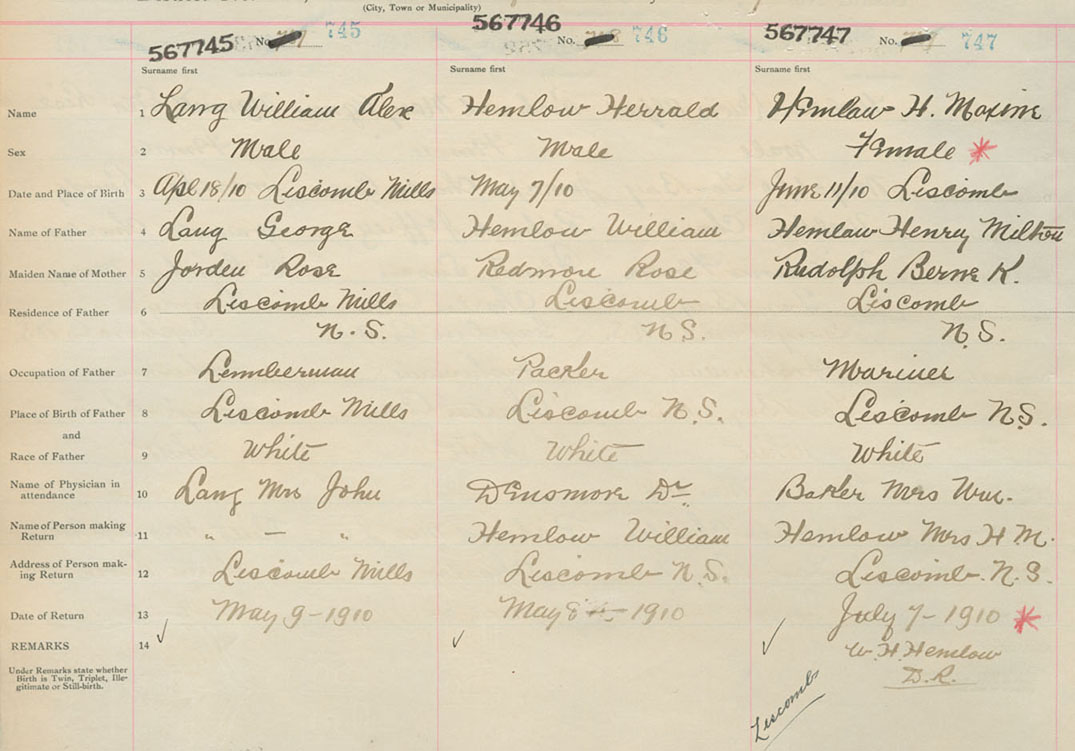 (City, Town or Municipality)
567745 No. 745
567746 No. 746
567747 No. 747
Surname first
Surname first
Surname first
Name 1 Lang William Alex Hemlow Herrald Hemlaw H. Maxine
Sex 2 Male Male Female *
Date and Place of Birth 3 Apl 18/10 Liscomb Mills May 7/10 June 11/10 Liscomb
Name of Father 4 Lang George Hemlow William Hemlaw Henry Milton
Maiden Name of Mother 5 Jorden Rose Redmon Rose Rudolph Berne K.
Residence of Father 6 Liscomb Mills Liscomb Liscomb
N.S. N.S. N.S.
Occupation of Father 7 Lumberman Packer Mariner
Place of Birth of Father 8 Liscomb Mills Liscomb N.S. Liscomb N.S.
and
Race of Father 9 White White White
Name of Physician in
attendance 10 Lang Mrs John Densmore Dr Baker Mrs Wm.
Name of Person making
Return 11 " — " Hemlow William Hemlow Mrs H M.
Address of Person mak-
ing Return 12 Liscomb Mills Liscomb N.S. Liscomb. N.S.
Date of Return 13 May 9-1910 May 8 - 1910 July 7-1910 *
REMARKS 14 W. H. Hemlow
D.R.
Under Remarks state whether
Birth is Twin, Triplet, Ille-
gitimate or Still-birth.
Liscomb